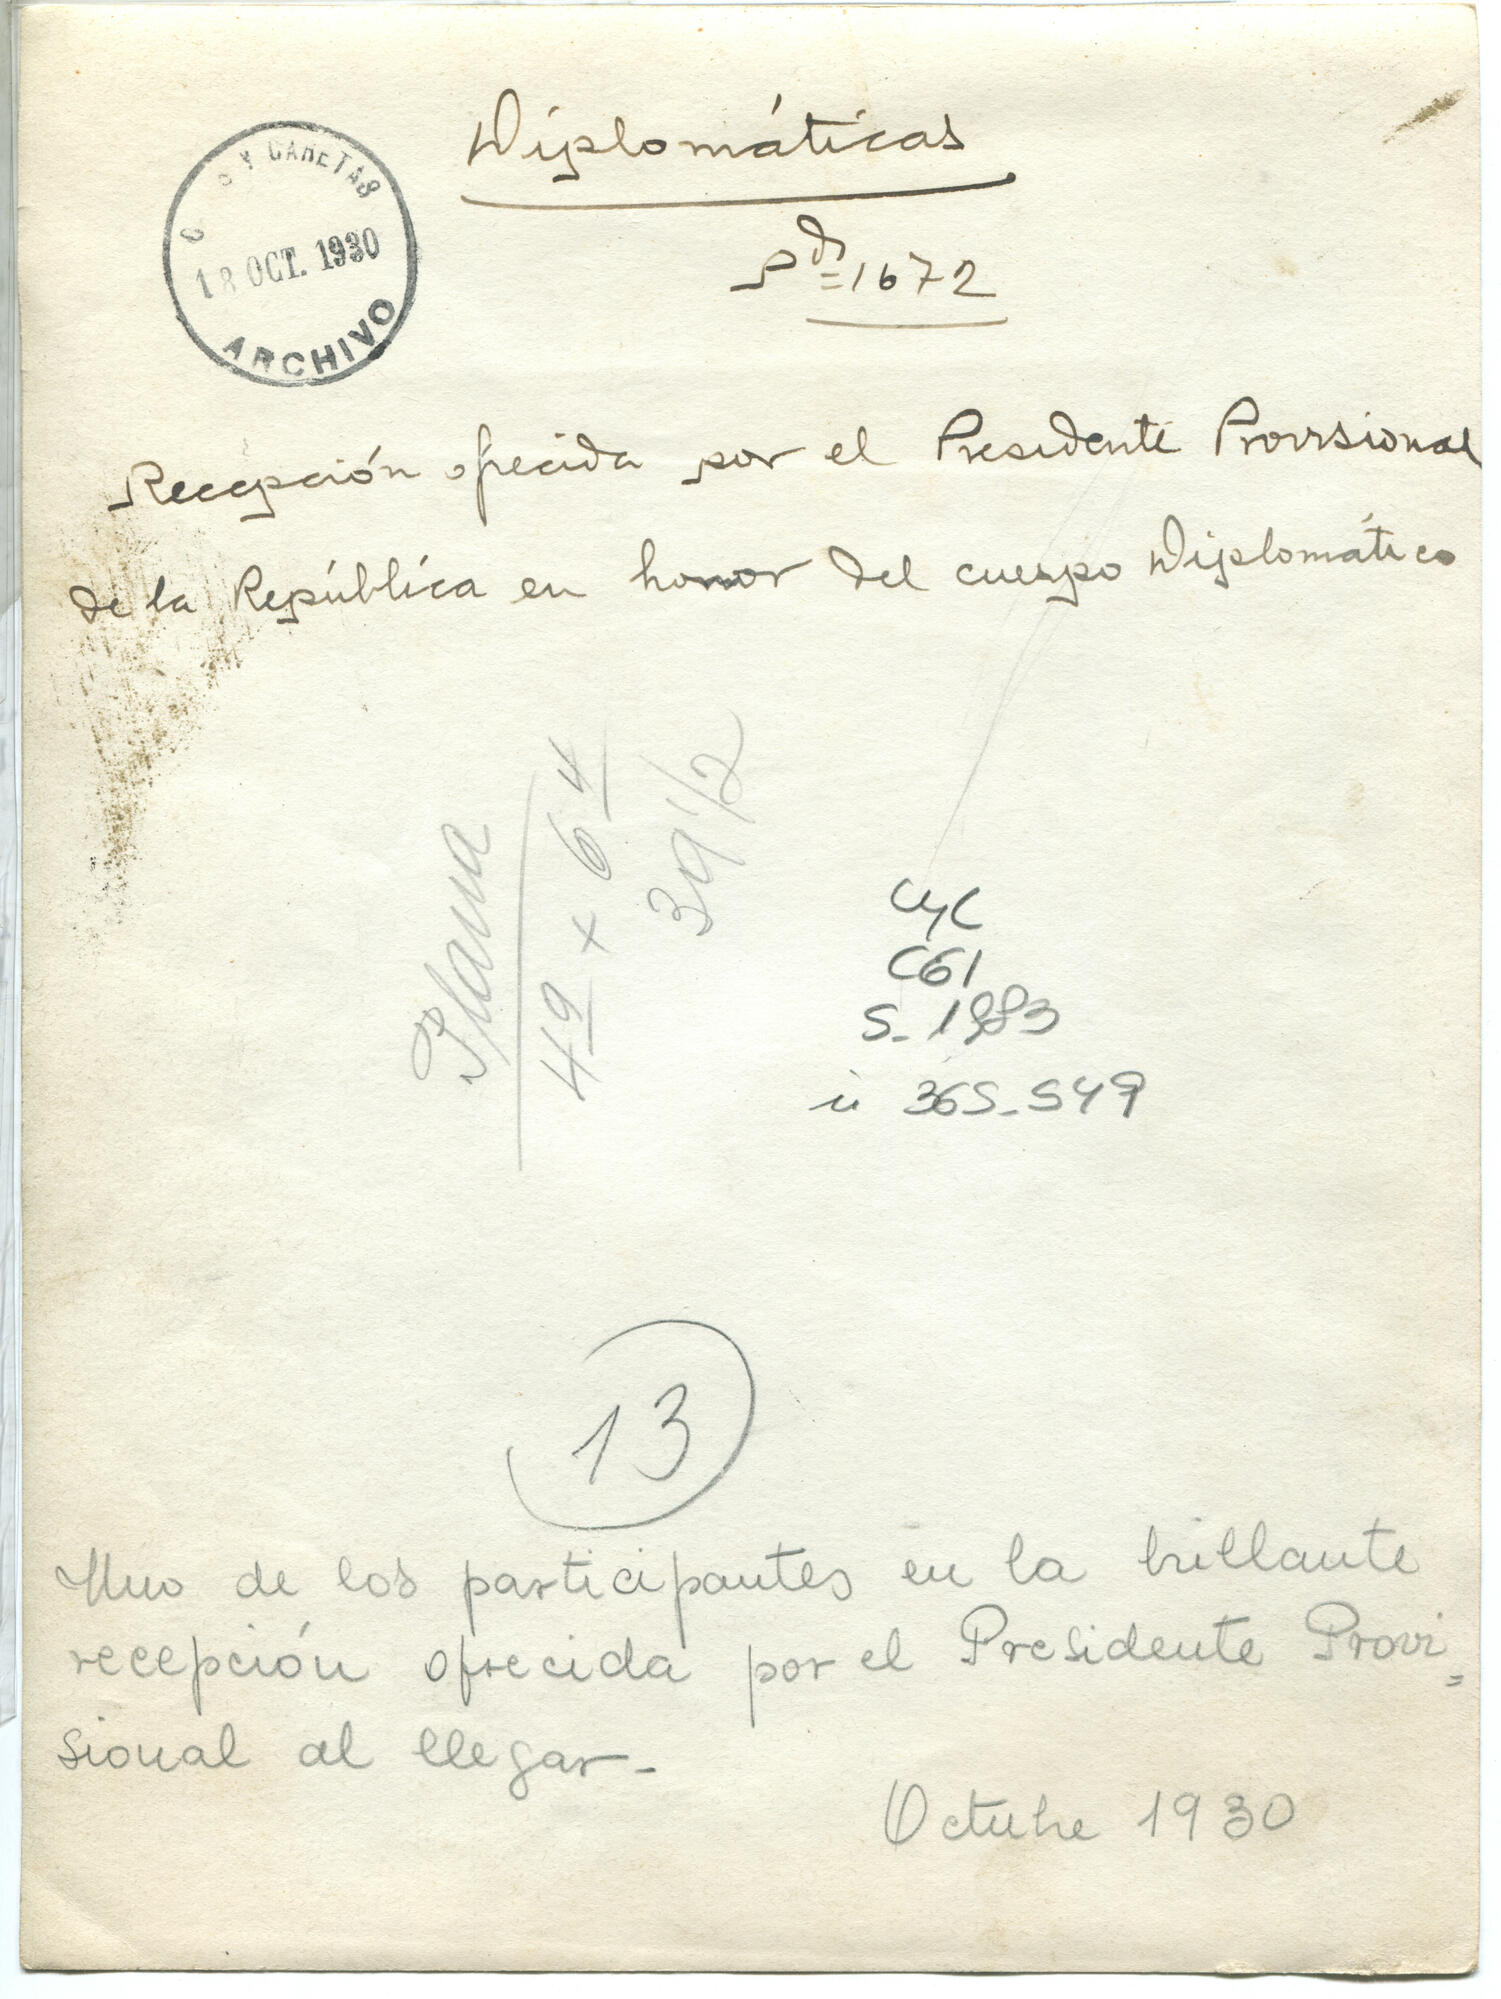 Diplomáticas
Pds = 1672
C O Y CARETAS
18 OCT. 1930
ARCHIVO
Recepción ofrecida por el Presidente Provisional
de la República en honor del cuerpo Diplomático
Plana
49 x 64
39 1/2
CyC
C61
S. 1983
365-549
13
Uno de los participantes en la brillante
recepción ofrecida por el Presidente Provi=
sional al llegar-
Octubre 1930